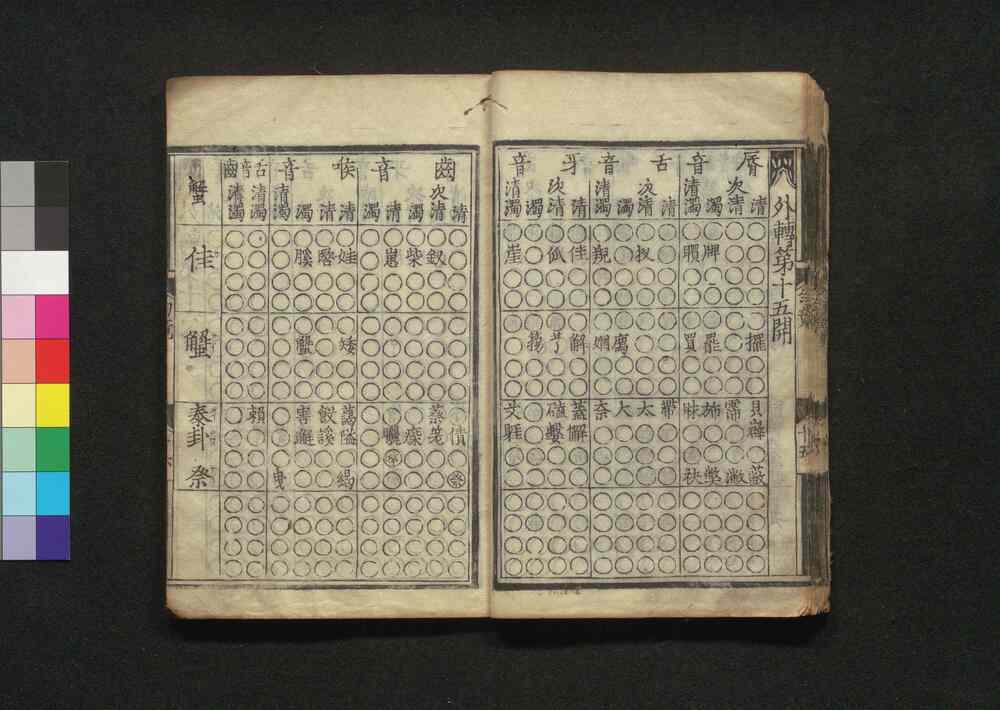 外轉第十五開
脣音
清
次清
濁
清濁
舌音
清
次清
濁
清濁
牙音
清
次清
濁
清濁
擺貝蔽
霈潎
牌罷旆弊
買昧袂
帶
扠太
廌大
嬭柰
佳解蓋懈
礚
崖艾睚
齒音
清
次清
濁
清
濁
喉音
清
清
濁
清濁
舌音齒
清濁
清濁
債祭
釵蔡
柴
曬
娃矮藹隘
餀謑
膎蟹害邂
曳
賴
蟹
佳
蟹
泰卦
祭